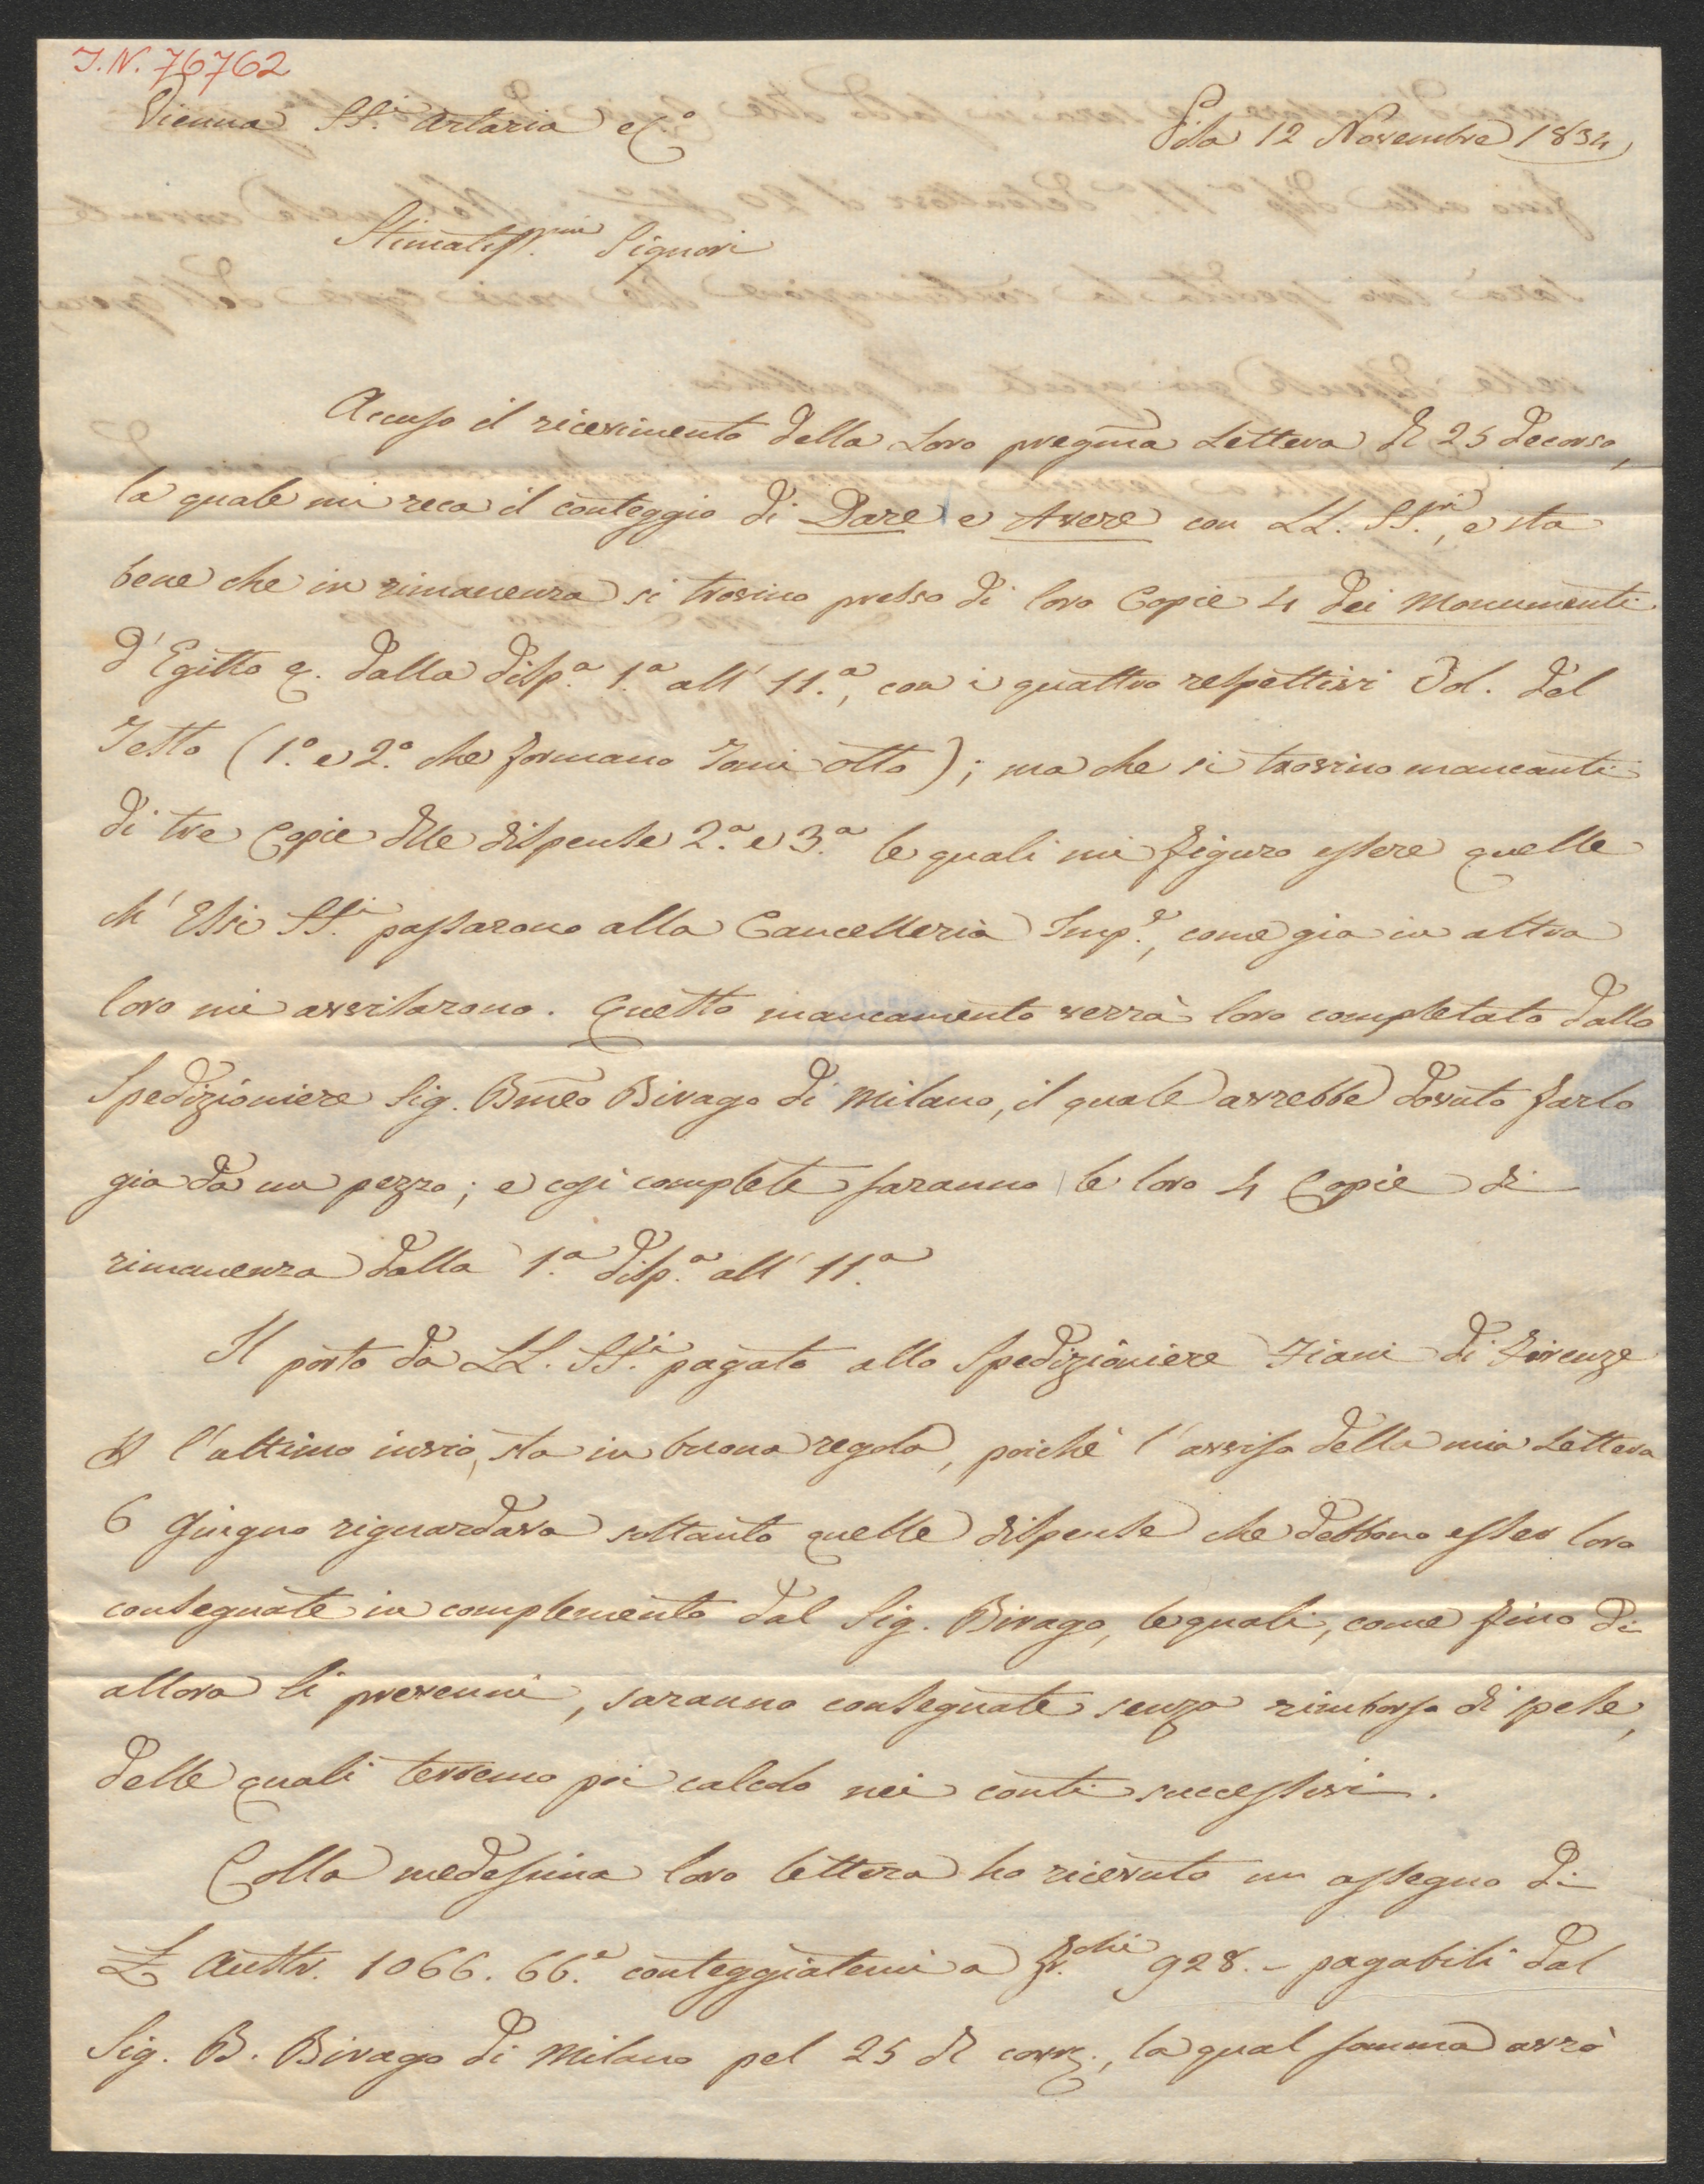 I.N. 76762
Vienna SS.i Artaria e C.o
Pisa 12 Novembre 1834
Stimatiss.mi Signori
Accuso il ricevimento della Loro pregma Lettera del 25 decorso,
la quale mi reca il conteggio di Dare e Avere con LL. SS.ri, e sta
bene che in rimanenza si trovino presso di loro Copie 4 dei Monumenti
d'Egitto &. dalla disp.a 1.a all' 11.a, con i quattro respettivi Vol. del
Testo (1.o e 2.o che formano Tomi otto); ma che si trovino mancanti
di tre Copie delle dispense 2.a e 3.a le quali mi figuro essere quelle
ch' Essi SS.i passarono alla Cancelleria Imp.e, come già in altra
loro mi avvisarono. Questo mancamento verrà loro completato dallo
Spedizioniere Sig. Bmeo Birago di Milano, il quale avrebbe dovuto farlo
gia da un pezzo; e così complete saranno le loro 4 Copie di
rimanenza dalla 1.a disp.a all' 11.a
Il porto da LL. SS.i pagato allo Spedizioniere Fiani di Firenze
per l'ultimo invio, sta in buona regola, poichè l'avviso della mia Lettera
6 Giugno riguardava soltanto quelle dispense che debbono esser loro
consegnate in complemento dal Sig. Birago, le quali, come fino di
allora li prevenni, saranno consegnate senza rimborso di spese,
delle quali terremo poi calcolo nei conti successivi.
Colla medesima loro lettera ho ricevuto un assegno di
£ Austr. 1066. 66.i conteggiatemi a fr.chi 928.- pagabili dal
Sig. B. Birago di Milano pel 25 del corr., la qual somma avrò